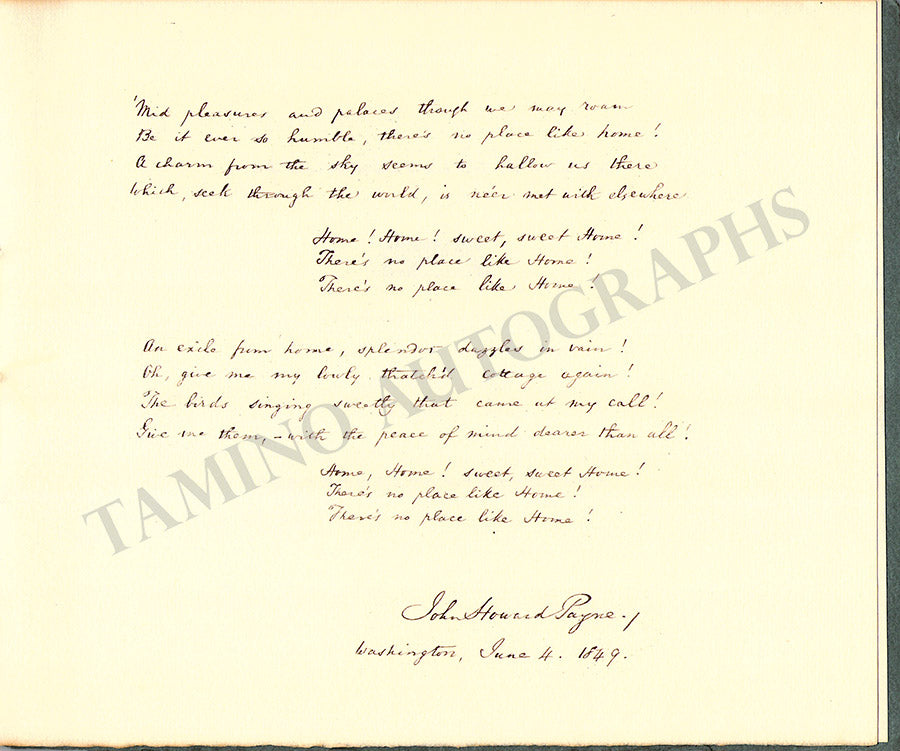 'Mid pleasures and palaces though we may roam
Be it ever so humble, there's no place like home!
A charm from the sky seems to hallow us there
Which, seek through the world, is ne'er met with elsewhere
Home! Home! sweet, sweet Home!
There's no place like Home!
There's no place like Home!
An exile from home, splendor dazzles in vain!
Oh, give me my lowly thatch'd cottage again!
The birds singing sweetly that came at my call!
Give me them, – with the peace of mind dearer than all!
Home, Home! sweet, sweet Home!
There's no place like Home!
There's no place like Home!
John Howard Payne.
Washington, June 4. 1849.
TAMINO AUTOGRAPHS